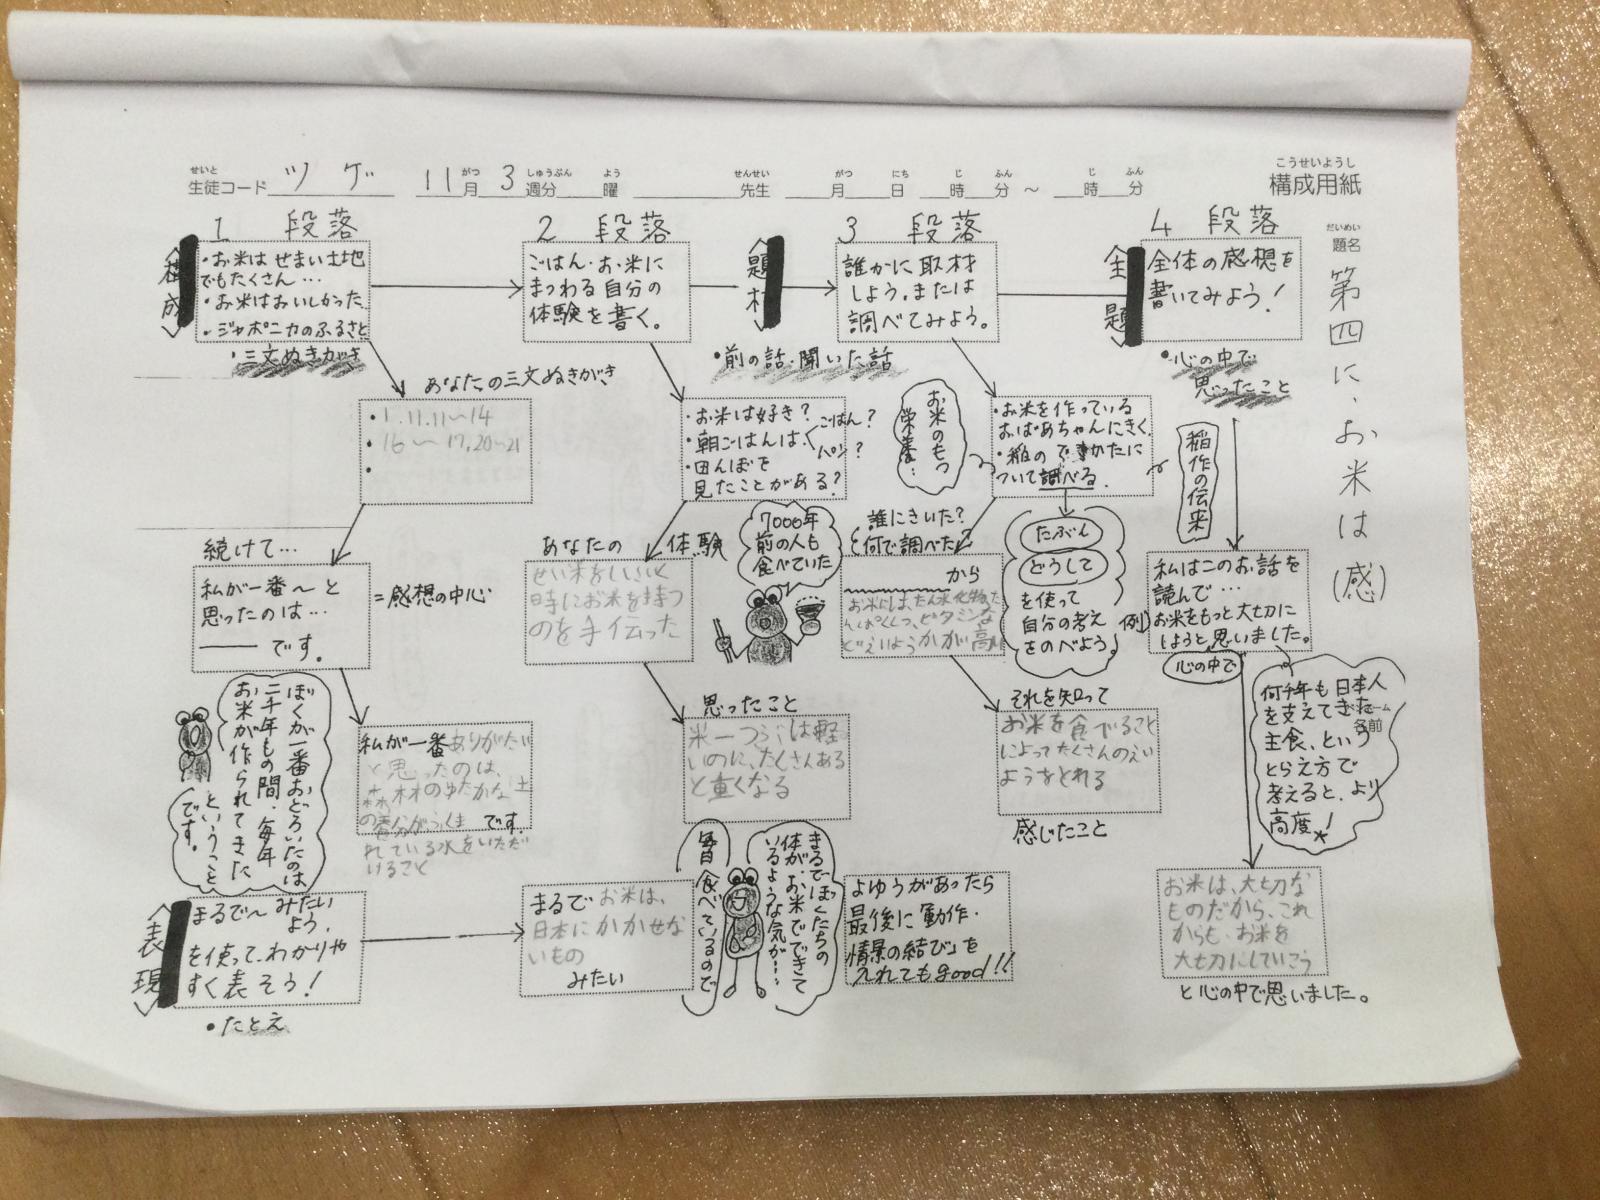 こうせいようし
構成用紙
せいと がつ しゅうぶん よう せんせい がつ にち じ ふん じ ふん
生徒コード ツゲ 11月 3週分 曜 先生 月 日 時 分 ～ 時 分
だいめい
題名
第四に、お米は(感)
1 段落
〈構成〉
・お米はせまい土地
でもたくさん…
・お米はおいしかった
・ジャポニカのふるさと
・三文ぬきがき
あなたの三文ぬきがき
・1.11.11〜14
・16〜17.20〜21
・
続けて…
私が一番〜と
思ったのは…
── です。
=感想の中心
私が一番ありがたい
と思ったのは、
森林のゆたかな土
の養分がふくま です。
れている水をいただ
けること
ぼくが一番おどろいたのは
二千年もの間、毎年
お米が作られてきた
ということ
です。
〈表現〉
まるで〜みたい
よう、
を使って、わかりや
すく表そう!
・たとえ
2 段落
ごはん・お米に
まつわる自分の
体験を書く。
・お米は好き?
・朝ごはんは ごはん?
パン?
・田んぼを
見たことがある?
あなたの体験
せい米をしにいく
時にお米を持つ
のを手伝った
思ったこと
米一つぶは軽
いのに、たくさんある
と重くなる
まるでお米は、
日本にかかせな
いもの
みたい
毎日食べているので
まるでぼくたちの
体が、お米でできて
いるような気が…
〈題材〉
・前の話・聞いた話
3 段落
誰かに取材
しよう。または
調べてみよう。
お米のもつ
栄養…
・お米を作っている
おばあちゃんにきく。
・稲のできかたに
ついて調べる。
稲作の伝来
7000年
前の人も
食べていた
誰にきいた?
何で調べた?
から
お米には、たん水化物、た
んぱくしつ、ビタミンな
どえいようかが高い
たぶん
どうして
を使って
自分の考え
をのべよう。
それを知って
お米を食べること
によってたくさんのえい
ようをとれる
感じたこと
よゆうがあったら
最後に「動作・
情景の結び」を
入れてもgood!!
〈主題〉
4 段落
全体の感想を
書いてみよう!
・心の中で
思ったこと
例
私はこのお話を
読んで…
お米をもっと大切に
しようと思いました。
心の中で
何千年も日本人
を支えてきた
主食、という
とらえ方で
考えると、より
高度!
名前
お米は、大切な
ものだから、これ
からも、お米を
大切にしていこう
と心の中で思いました。